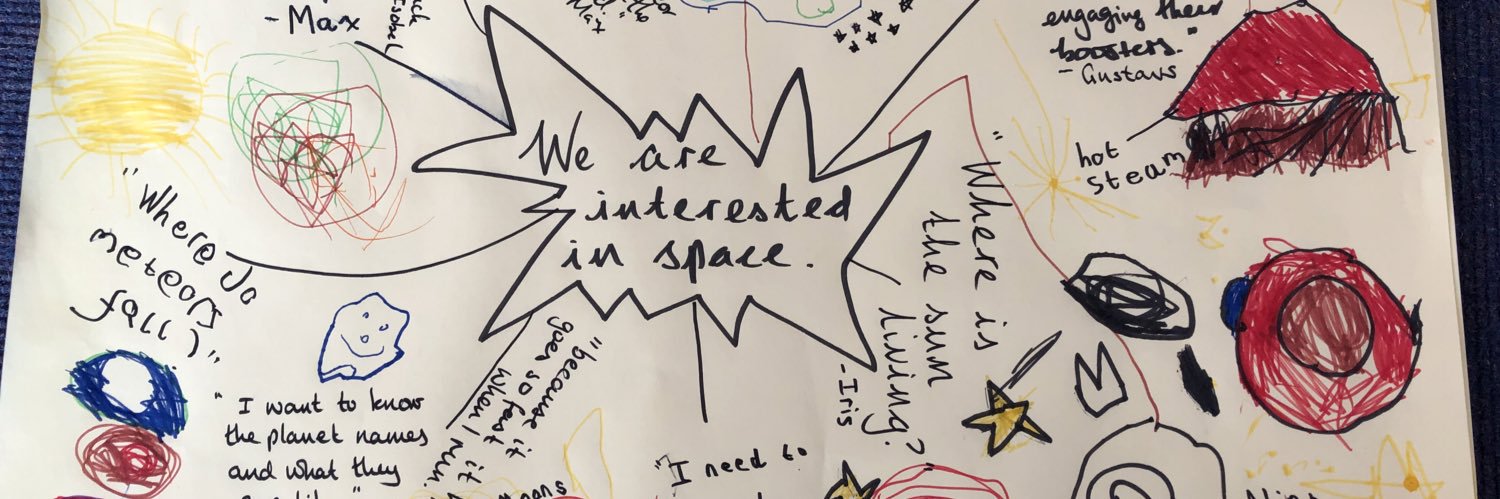 - Max
Max
engaging their
boosters."
- Gustavs
hot
steam
We are
interested
in space.
"Where do
meteors
fall?"
"Where is
the sun
living?"
- Iris
"I want to know
the planet names
and what they
"because it
goes so fast it
when I run.
"I need to